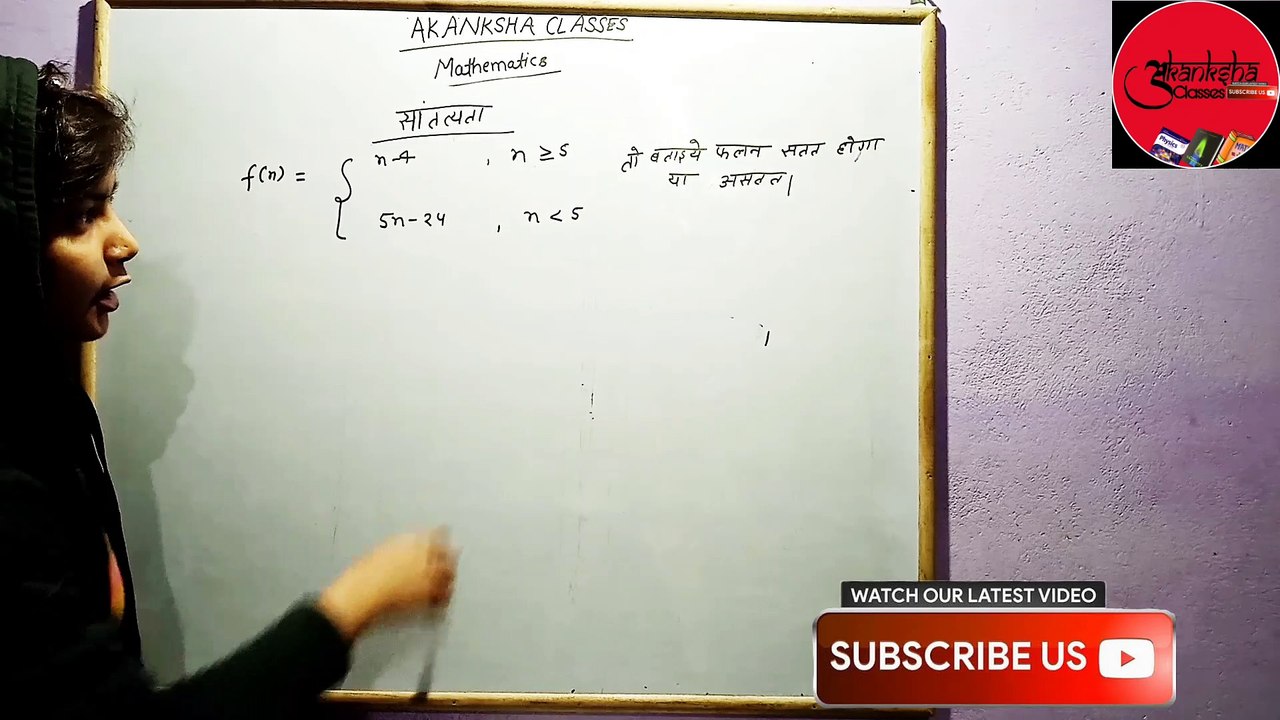 AKANKSHA CLASSES
Mathematics
सांतत्यता
f(n) = { n-4 , n ≥ 5
5n-24 , n < 5
तो बताइये फलन सतत होगा
या असतत।
अkanksha
Classes
SUBSCRIBE US
Physics
WATCH OUR LATEST VIDEO
SUBSCRIBE US